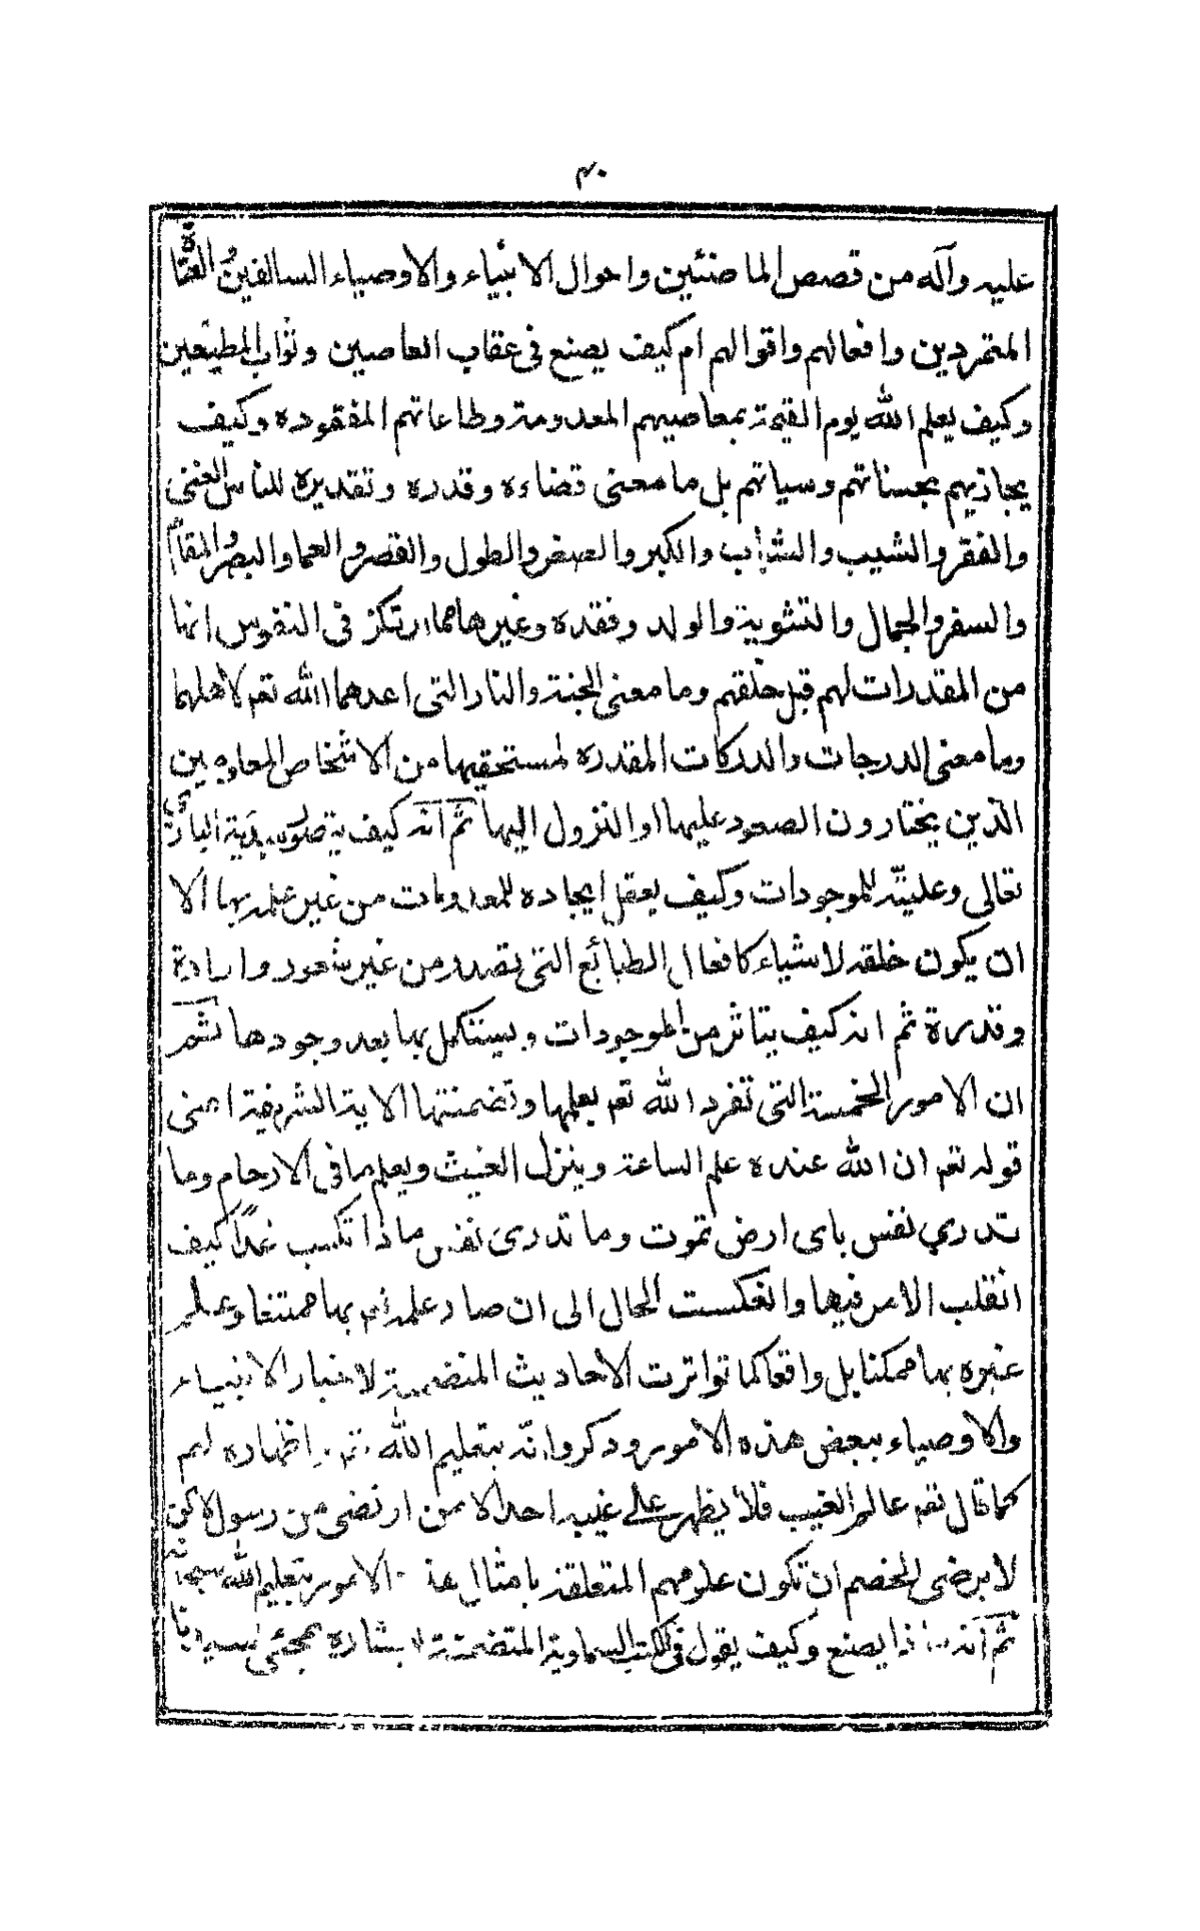 ٣٠
عليه وآله من قصص الماضئين واحوال الانبياء والاوصياء السالفين والعتاة
المتمردين وافعالهم واقوالهم ام كيف يصنع فى عقاب العاصين وثواب المطيعين
وكيف يعلم الله يوم القيمة بمعاصيهم المعدومة وطاعاتهم المفقوده وكيف
يجازيهم بحسناتهم وسياتهم بل ما معنى قضاءه وقدره وتقديره للناس الغنى
والفقر والشيب والشباب والكبر والصغر والطول والقصر والعما والبصر والمقام
والسفر والجمال والتشويه والولد وفقده وغيرها مما ارتكز فى النفوس انها
من المقدرات لهم قبل خلقهم وما معنى الجنة والنار التى اعدهما الله تعم لاهلهما
وما معنى الدرجات والدركات المقدره لمستحقيها من الاشخاص المعدومين
الذين يختارون الصعود عليها او النزول اليها ثم انه كيف يتصور مبدئية البارى
تعالى وعليته للموجودات وكيف يعقل ايجاده للمعدومات من غير علمه بها الا
ان يكون خلقه لاشياء كافعال الطبائع التى تصدر من غير شعور وارادة
وقدرة ثم انه كيف يتاثر من الموجودات ويستكمل بها بعد وجودها ثم
ان الامور الخمسة التى تفرد الله تعم بعلمها وتضمنتها الاية الشريفة اعنى
قوله تعم ان الله عنده علم الساعة وينزل الغيث ويعلم ما فى الارحام وما
تدري نفس باى ارض تموت وما تدرى نفس ماذا تكسب غدا كيف
انقلب الامر فيها وانعكست الحال الى ان صار علمه تعم بها ممتنعا وعلم
غيره بها ممكنا بل واقعا كما تواترت الاحاديث المتضمنة لاخبار الانبياء
والاوصياء ببعض هذه الامور وذكروا انه بتعليم الله اظهاره لهم
كما قال تعم عالم الغيب فلا يظهر على غيبه احدا الا من ارتضى من رسول لا كن
لا يرضى الخصم ان تكون علومهم المتعلقة بامثال هذه الامور بتعليم الله سبحانه
ثم انه ماذا يصنع وكيف يقول فى الكتب السماوية المتضمنة لبشاره بمجئى سيدنا